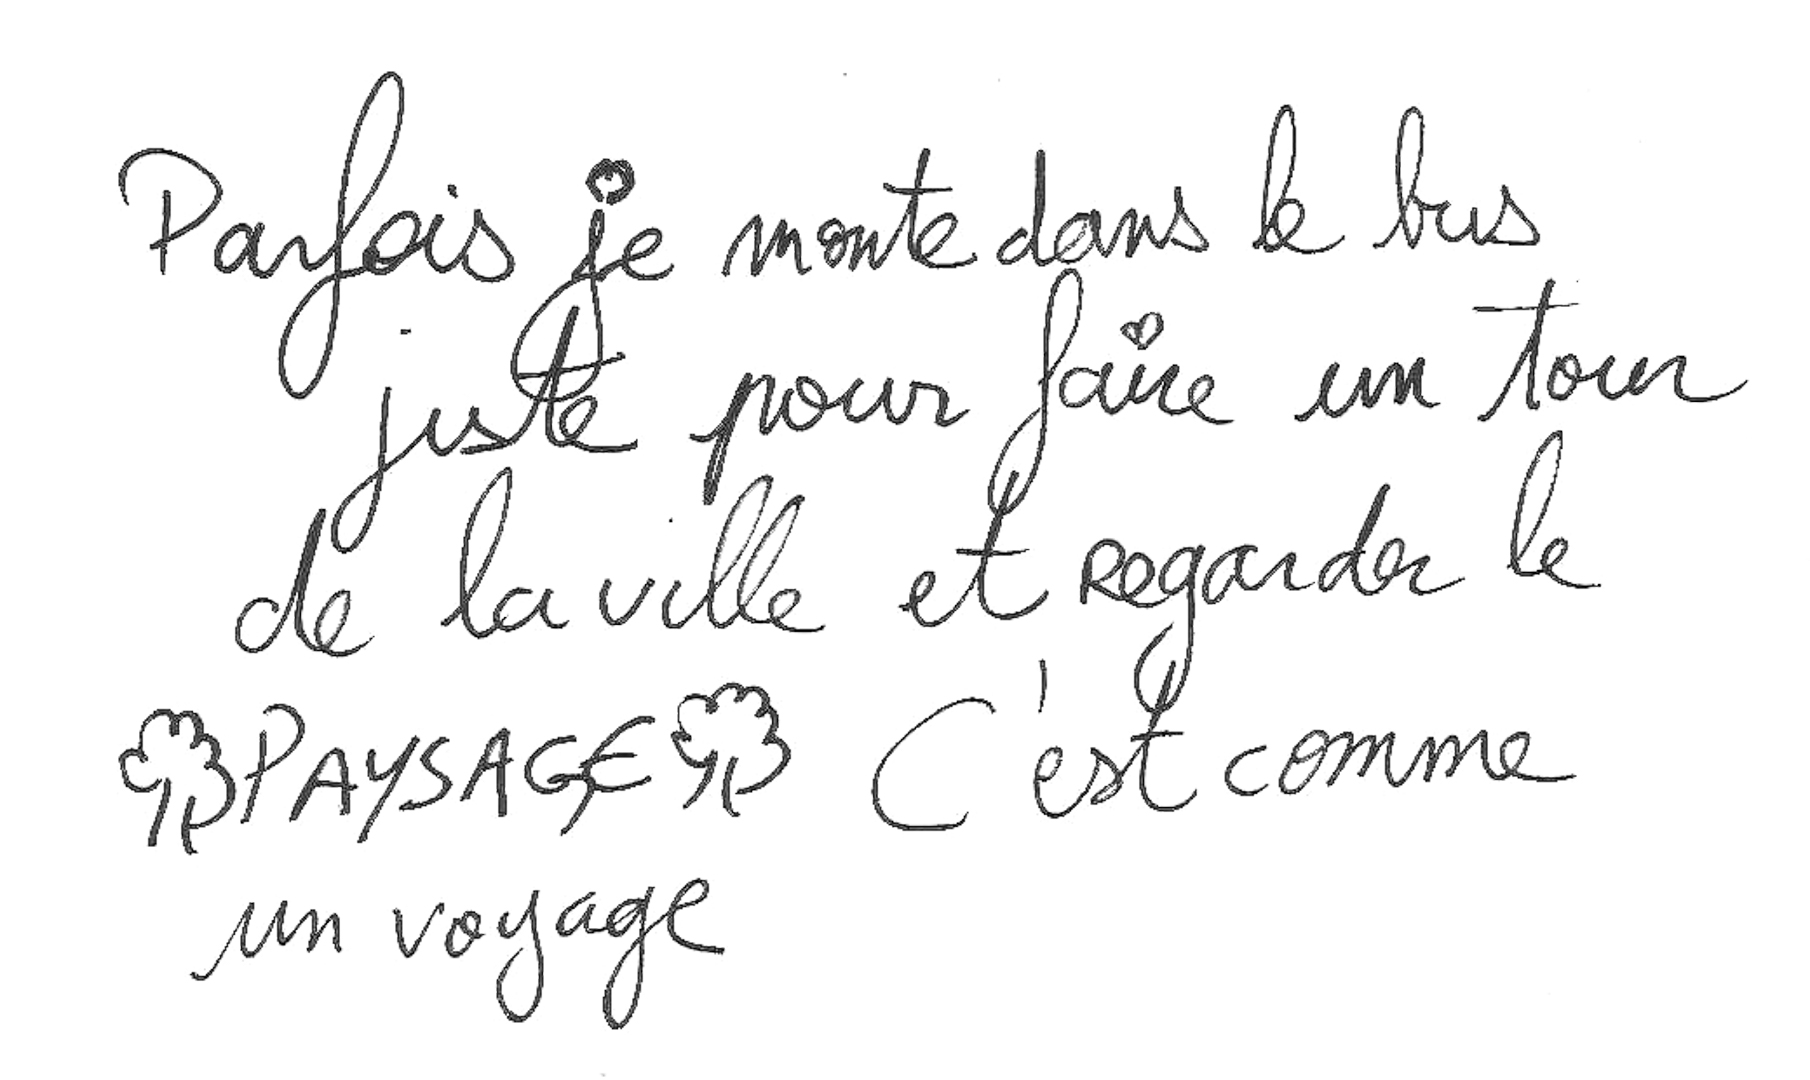 Parfois je monte dans le bus
juste pour faire un tour
de la ville et regarder le
PAYSAGE C'est comme
un voyage